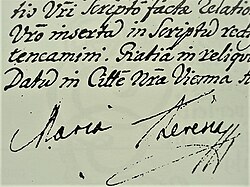 tis Vri Scriptô factâ relatio
Vrô insertâ in Scriptis red
tencamini. Gratiâ in reliqu
Datum in Citte Nrâ Vienna
Maria Theresia